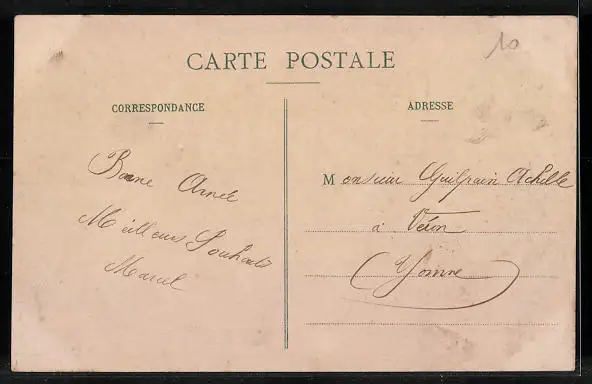 10
CARTE POSTALE
CORRESPONDANCE
Bonne Année
Meilleurs Souhaits
Marcel
ADRESSE
Monsieur Guilpain Achille
à Véron
(Yonne)